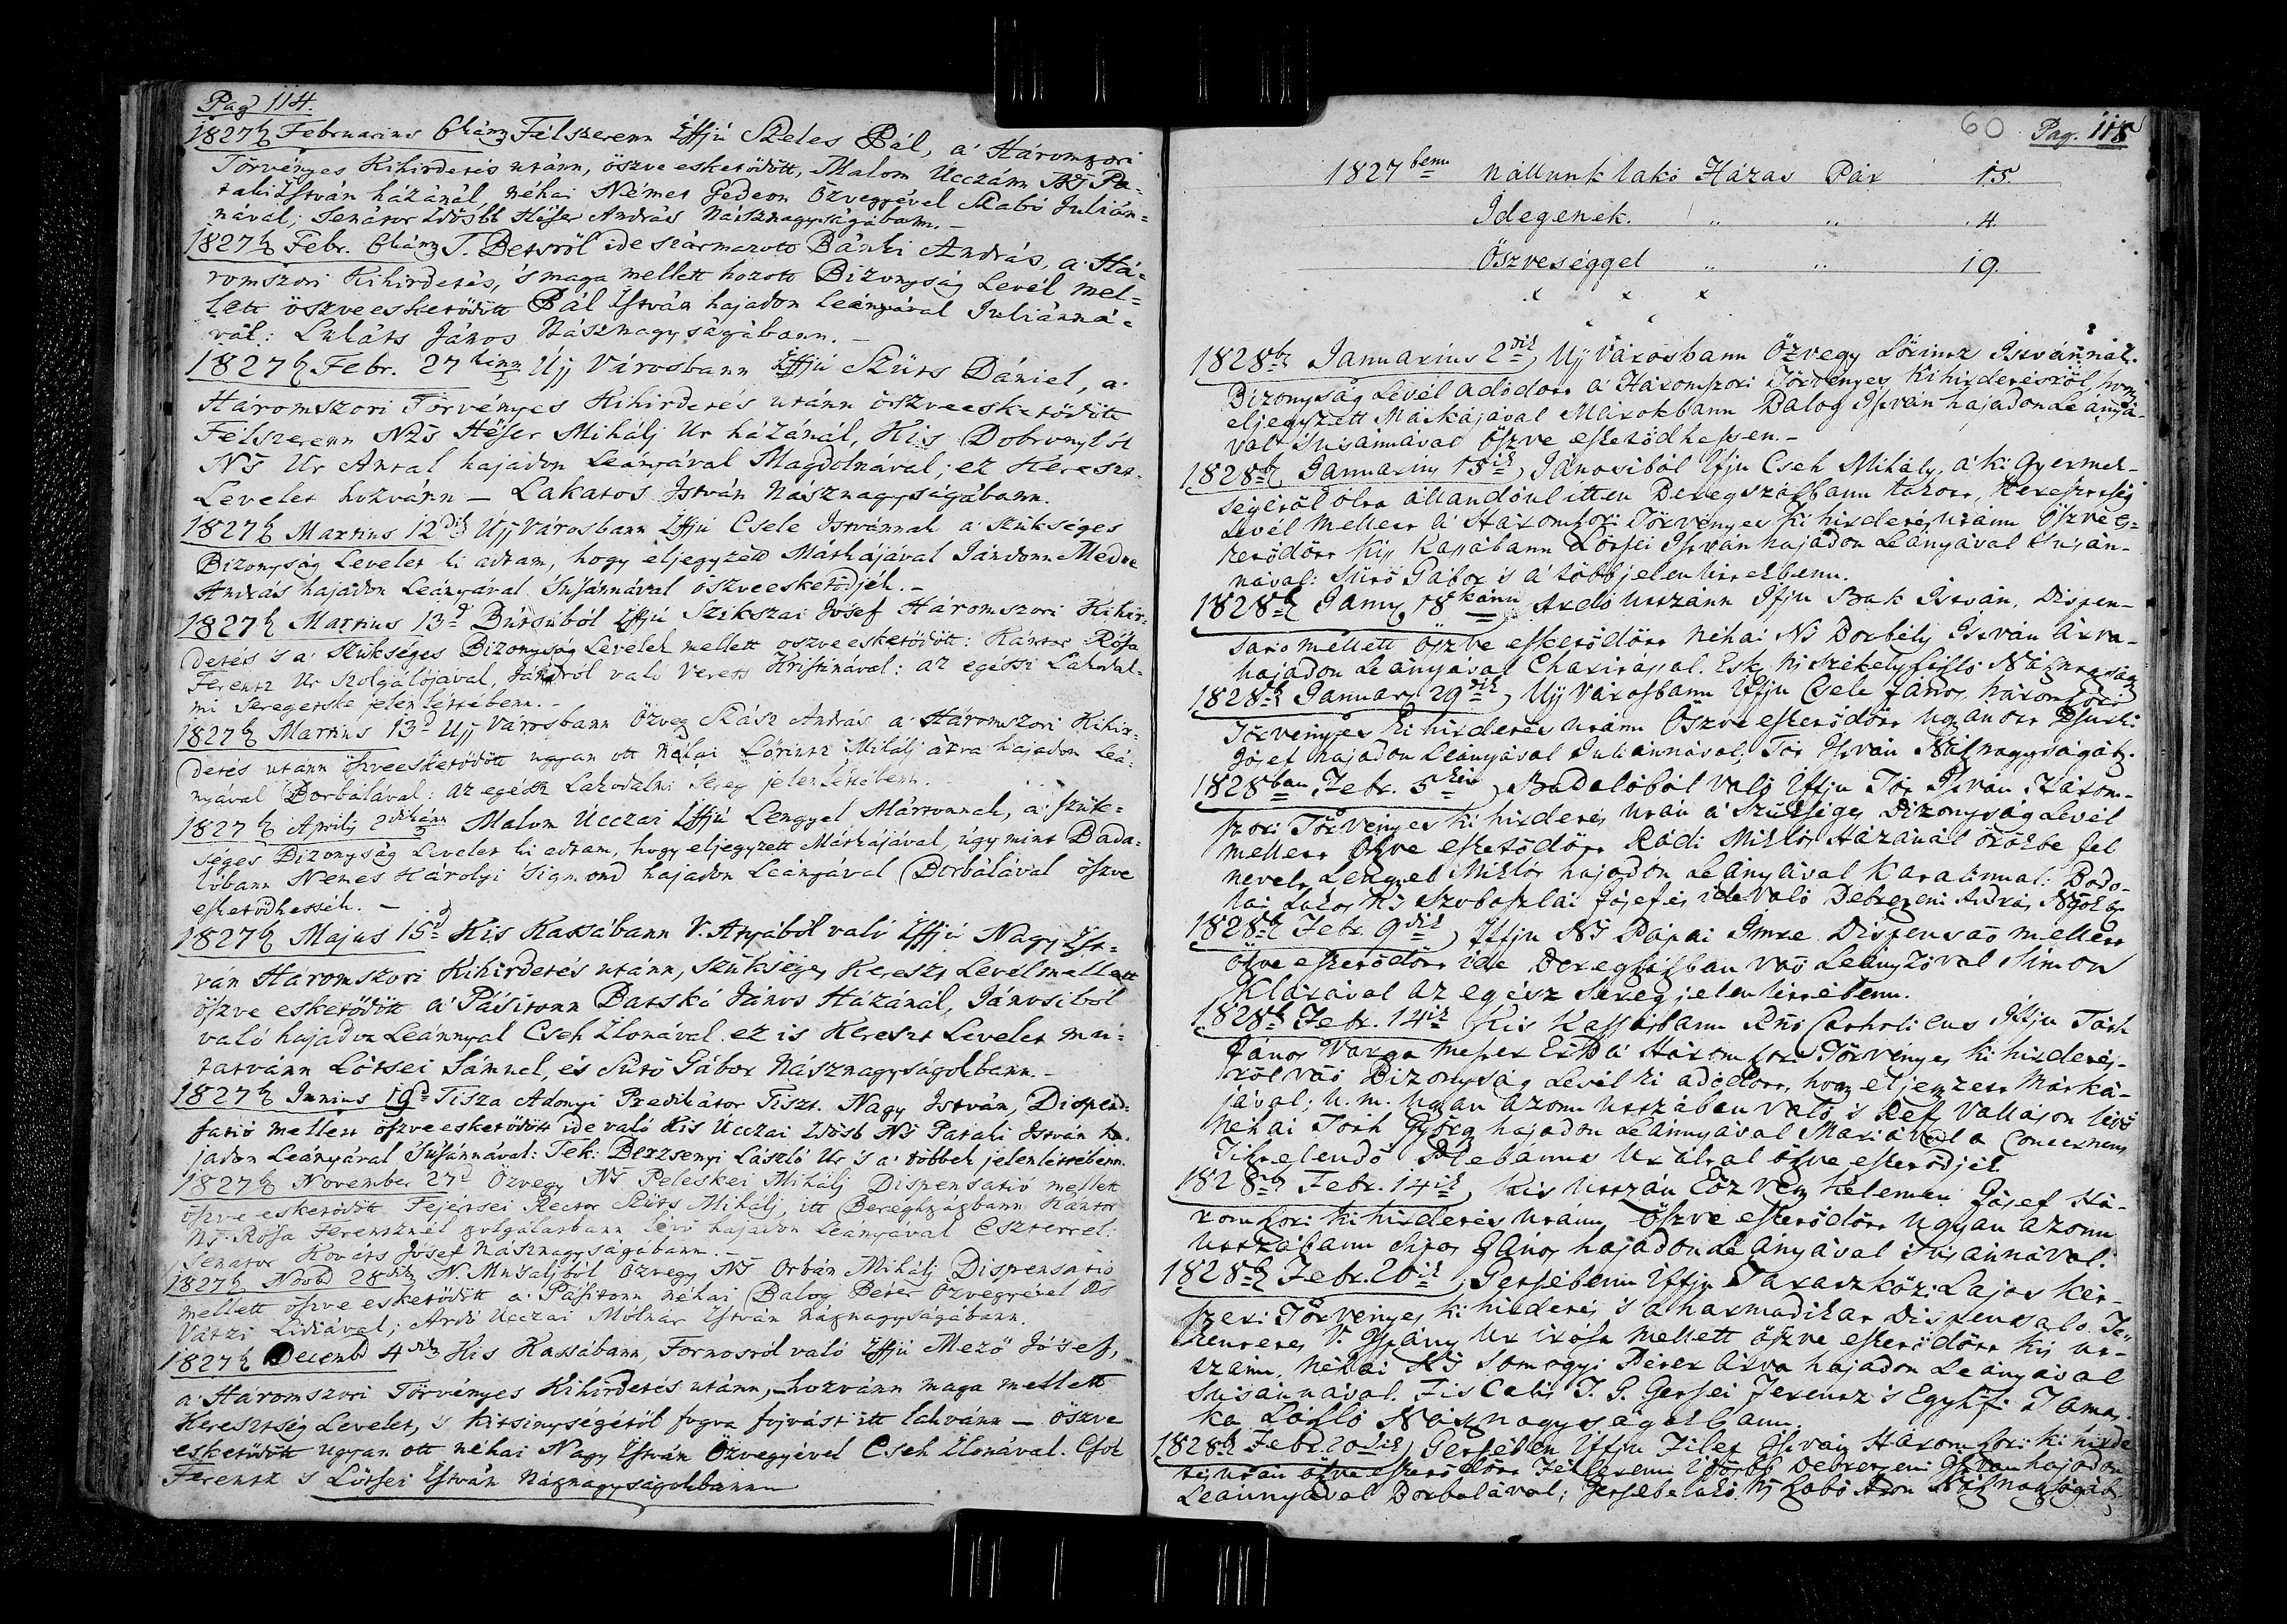 Pag 114.
1827b Februarius 6kánn Félszerenn Iffjú Szeles Pál, a' Háromszori
Törvényes Kihirdetés utánn, öszve esketödött, Malom Ucczánn Ns Pa-
taki István házánál, néhai Német Gedeon Özvegyével Szabó Julián-
nával; Senátor Idösbb Héser András Násznagyságábann. –
1827b Febr. 6kánn T. Betsröl ide származott Bánki András, a' Há-
romszori Kihirdetés, 's maga mellett hozott Bizonyság Levél mel-
lett öszve esketödött Pál István hajadon Leányával Juliánná-
val: Lukáts János Násznagyságábann. –
1827b Febr. 27kénn Ujj Városbann Iffjú Szüts Dániel, a'
Háromszori Törvényes Kihirdetés utánn öszveesketödött
Félszerenn Ns Héser Mihálj Ur házánál, Kis Dobronyból
Ns Ur Antal hajadon Leányával Magdolnával; ez Kereszt
Levelet hozvánn – Lakatos István Násznagyságábann.
1827b Martius 12dik Ujj Városbann Iffjú Csele Istvánnak a' szükséges
Bizonyság Levelet ki adtam, hogy eljegyzett Márkájával Jándonn Medve
András hajadon Leányával Susánnával öszveesketödjék. –
1827b Martius 13d Bútsúból Iffjú Szikszai Josef Háromszori Kihir-
detés 's a' Szükséges Bizonyság Levelek mellett öszveesketödött: Kántor Rósa
Ferentz Ur Szolgálójával, Jándról való Veress Kristinával: az egéssz Lakodal-
mi Seregetske jelenlétébenn. –
1827b Martius 13d Ujj Városbann Özvegy Szász András a' Háromszori Kihir-
detés utánn öszveesketödött ugyan ott néhai Lörintz Mihálj árva hajadon Leá-
nyával Borbálával: az egéssz Lakodalmi Sereg jelenlétébenn.
1827b Aprilj 2dikánn Malom Ucczai Iffjú Lengyel Mártonnak, a' szük-
séges Bizonyság Levelet ki adtam, hogy eljegyzett Márkájával, úgymint Bada-
lóbann Nemes Károlyi Sigmond hajadon Leányával Borbálával öszve
esketödhessék. –
1827b Majus 15d Kis Kassábann V. Atyából való Iffjú Nagy Ist-
ván Háromszori Kihirdetés utánn, szükséges Kereszt Levél mellett
öszve esketödött a' Pásitonn Batskó János Házánál, Jánosiból
való hajadon Leánnyal Cseh Ilonával. ez is Kereszt Levelet mu-
tatvánn Lötsei Sámuel, és Sütö Gábor Násznagyságokbann. –
1827b Junius 19d Tisza Adonyi Predikátor Tiszt. Nagy István, Dispen-
satió mellett öszveesketödött ide való Kis Ucczai Idösb Ns Pataki István ha-
jadon Leányával Susánnával: Tek: Berzsenyi László Ur 's a' többek jelenlétébenn.
1827b November 27d Özvegy Ns Peleskei Mihálj Dispensatió mellett
öszve esketödött Fejértsei Rector Szüts Mihálj, itt Beregszászbann Kántor
Ns. Rósa Ferentznél szolgálatbann levö hajadon Leányával Eszterrel.
Senator Kováts Josef Násznagyságábann. –
1827b Novb 28dik N. Musaljból Özvegy Ns Orbán Mihálj Dispensatio
mellett öszve esketödött a' Pásitonn néhai Balog Péter Özvegyével Ns
Vátzi Lidiával; Ardó Ucczai Mólnár István Násznagyságábann.
1827b Decemb 4dik Kis Kassábann, Fornosról való Iffjú Mezö Jósef,
a' Háromszori Törvényes Kihirdetés utánn, hozvánn maga mellett
Keresztség Levelet, 's kitsinységétöl fogva folyvást itt lakvánn – öszve
esketödött ugyan ott néhai Nagy István Özvegyével Cseh Ilonával.
Ferentz 's Lötsei István Násznagyságokbann
60 Pag. 115
1827benn nállunk lakó Házas Pár 15.
Idegenek. „ „ 4.
Öszveséggel „ „ 19.
x x x
1828b Januarius 2dik Ujj Városbann Özvegy Lörintz Istvánnak
Bizonyság Levél adódott a' Háromszori Törvényes Kihirdetésröl, hogy
eljegyzett Márkájával Márokbann Balog István hajadon Leányá-
val Susánnával öszve esketödhessen. –
1828b Januarius 15ik Jánosiból Ifju Cseh Mihály, a' ki Gyermek-
ségéröl olta állandóul itten Beregszászbann lakott, Keresztség
Levél mellett a' Háromszori Törvényes Kihirdetés utánn öszve es-
ketödött Kis Kassábann Lötsei István hajadon Leányával Susán-
nával: Sütö Gábor 's a' többjelenlétekbenn.
1828b Jan. 18kánn Ardó utszánn Ifju Bak István, Dispen-
satio mellett öszve esketödött néhai Ns Borbély István árva
hajadon Leányával Charitassal.
1828b Januar 29dik Ujj Városbann Iffju Csele János, háromszori
Törvényes kihirdetés utánn öszve esketödött ugyanott
Jósef hajadon Leányával Juliánnával; Tór István Násznagyságáb.
1828ban Febr. 5kén Badalóból való Iffju Tór István Három-
szori Törvényes kihirdetés után a' szükséges Bizonyság Levél
mellett öszve esketödött Rádi Miklós Házánál örökbe fel
nevelt Lengyel Miklós hajadon Leányával Katalinnal: Bodo-
lai Lukáts Ns Szoboszlai Jósef és ide való Debretzeni András
1828b Febr. 9dik Iffju Ns Pápai Imre Dispensatio mellett
öszve esketödött ide Beregszászban való Leányzóval Simon
Klárával az egész Sereg jelenlétébenn.
1828b Febr. 14ik Kis Kassábann Catholicus Iffju Tóth
János Varga Mester a' Háromszori Törvényes kihirdetés-
röl való Bizonyság Levél ki adódott, hogy eljegyzett Márká-
jával; u. m. ugyan azonn utszában való 's Ref. Valláson lévö
néhai Tóth György hajadon Leányával Máriával a' Concernens
Plebánus Ur által öszve esketödjék.
1828b Febr. 14ik Kis utszán Özvegy Kelemen Jósef Há-
romszori kihirdetés utánn öszve esketödött ugyan azonn
utszábann Sipos János hajadon Leányával Susánnával.
1828b Febr. 20ik Getsébenn Iffju Darászközi Lajos két-
szeri Törvényes kihirdetés 's a' harmadikat Dispensato
V. Ispány Ur irása mellett öszve esketödött kis ut-
szánn néhai Ns Somogyi Péter árva hajadon Leányával
Susánnával. Fiscalis T. S. Getsei Ferentz 's
László Násznagyságokbann.
1828b Febr. 20dik Getsében Iffju Filep István Háromszori kihirde-
tés után öszve esketödött Félszerenn Idösbb Debretzeni István hajadon
Leánnyával Borbálával; Getsébe lakó Ns Szabó Áron Násznagyságáb.